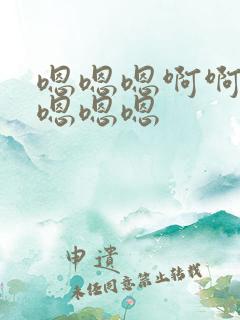 嗯嗯嗯啊啊
嗯嗯嗯
申遗
未经同意禁止转载